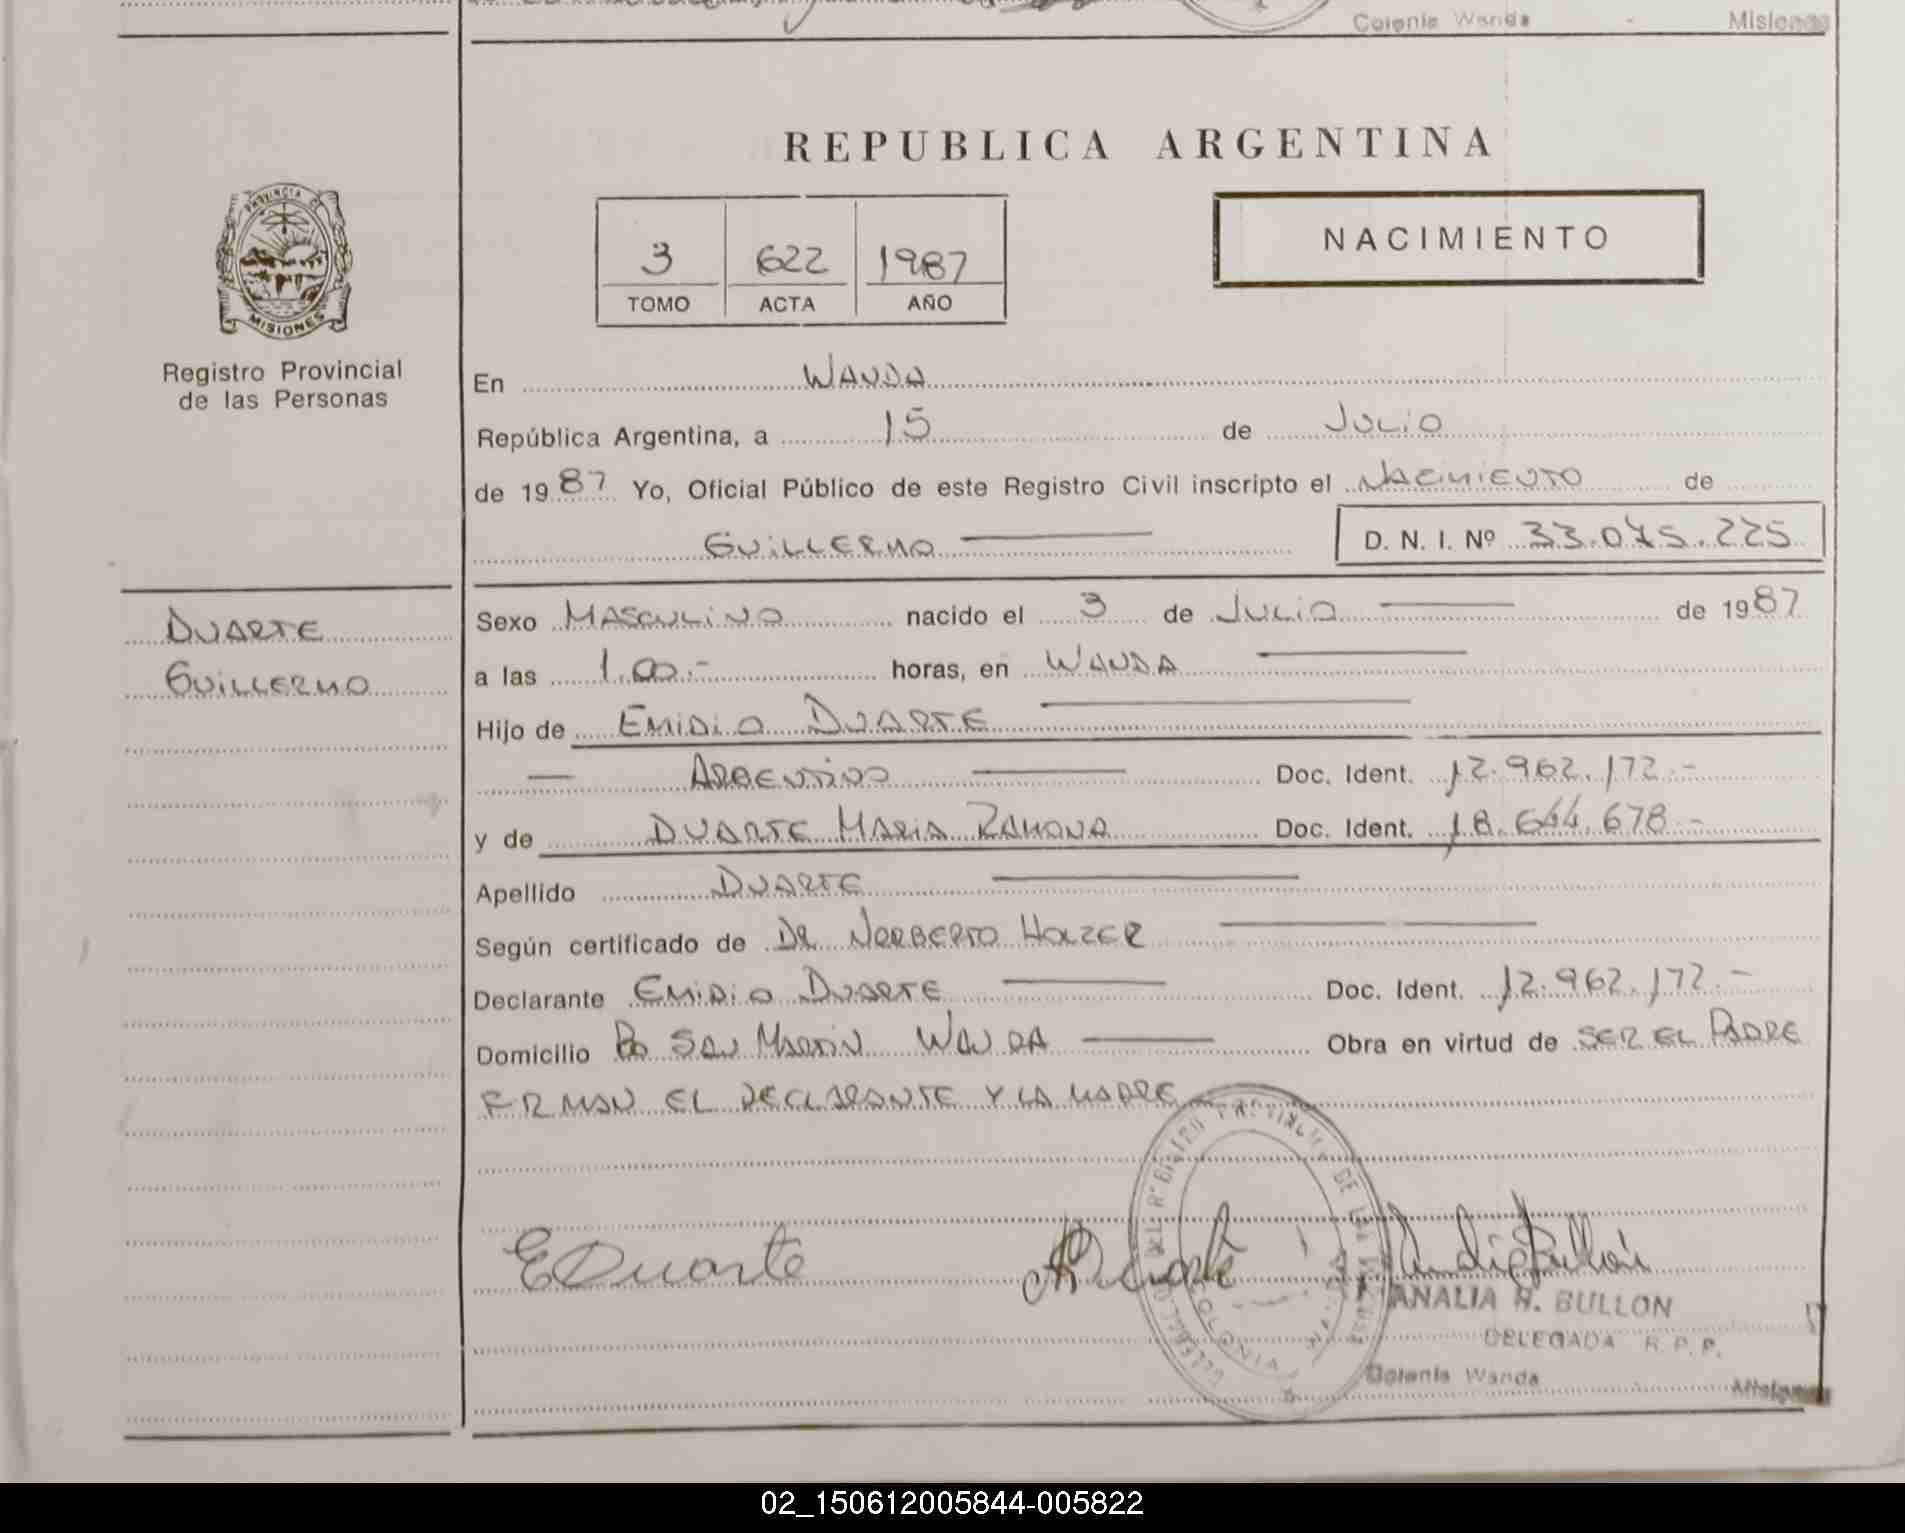 Colonia Wanda - Misiones
REPUBLICA ARGENTINA
PROVINCIA
MISIONES
Registro Provincial
de las Personas
3 622 1987
TOMO ACTA AÑO
NACIMIENTO
En WANDA
República Argentina, a 15 de JULIO
de 1987 Yo, Oficial Público de este Registro Civil inscripto el NACIMIENTO de
GUILLERMO D. N. I. Nº 33.075.225
DUARTE
GUILLERMO
Sexo MASCULINO nacido el 3 de JULIO de 1987
a las 1.00.- horas, en WANDA
Hijo de EMIDIO DUARTE
ARGENTINO Doc. Ident. 12.962.172.-
y de DUARTE MARIA RAMONA Doc. Ident. 18.644.678-
Apellido DUARTE
Según certificado de DR NORBERTO HOLZER
Declarante EMIDIO DUARTE Doc. Ident. 12.962.172.-
Domicilio Bo SAN MARTIN WANDA Obra en virtud de SER EL PADRE
FIRMAN EL DECLARANTE Y LA MADRE
E Duarte
ANALIA H. BULLON
DELEGADA R. P. P.
Colonia Wanda Misiones
02_150612005844-005822